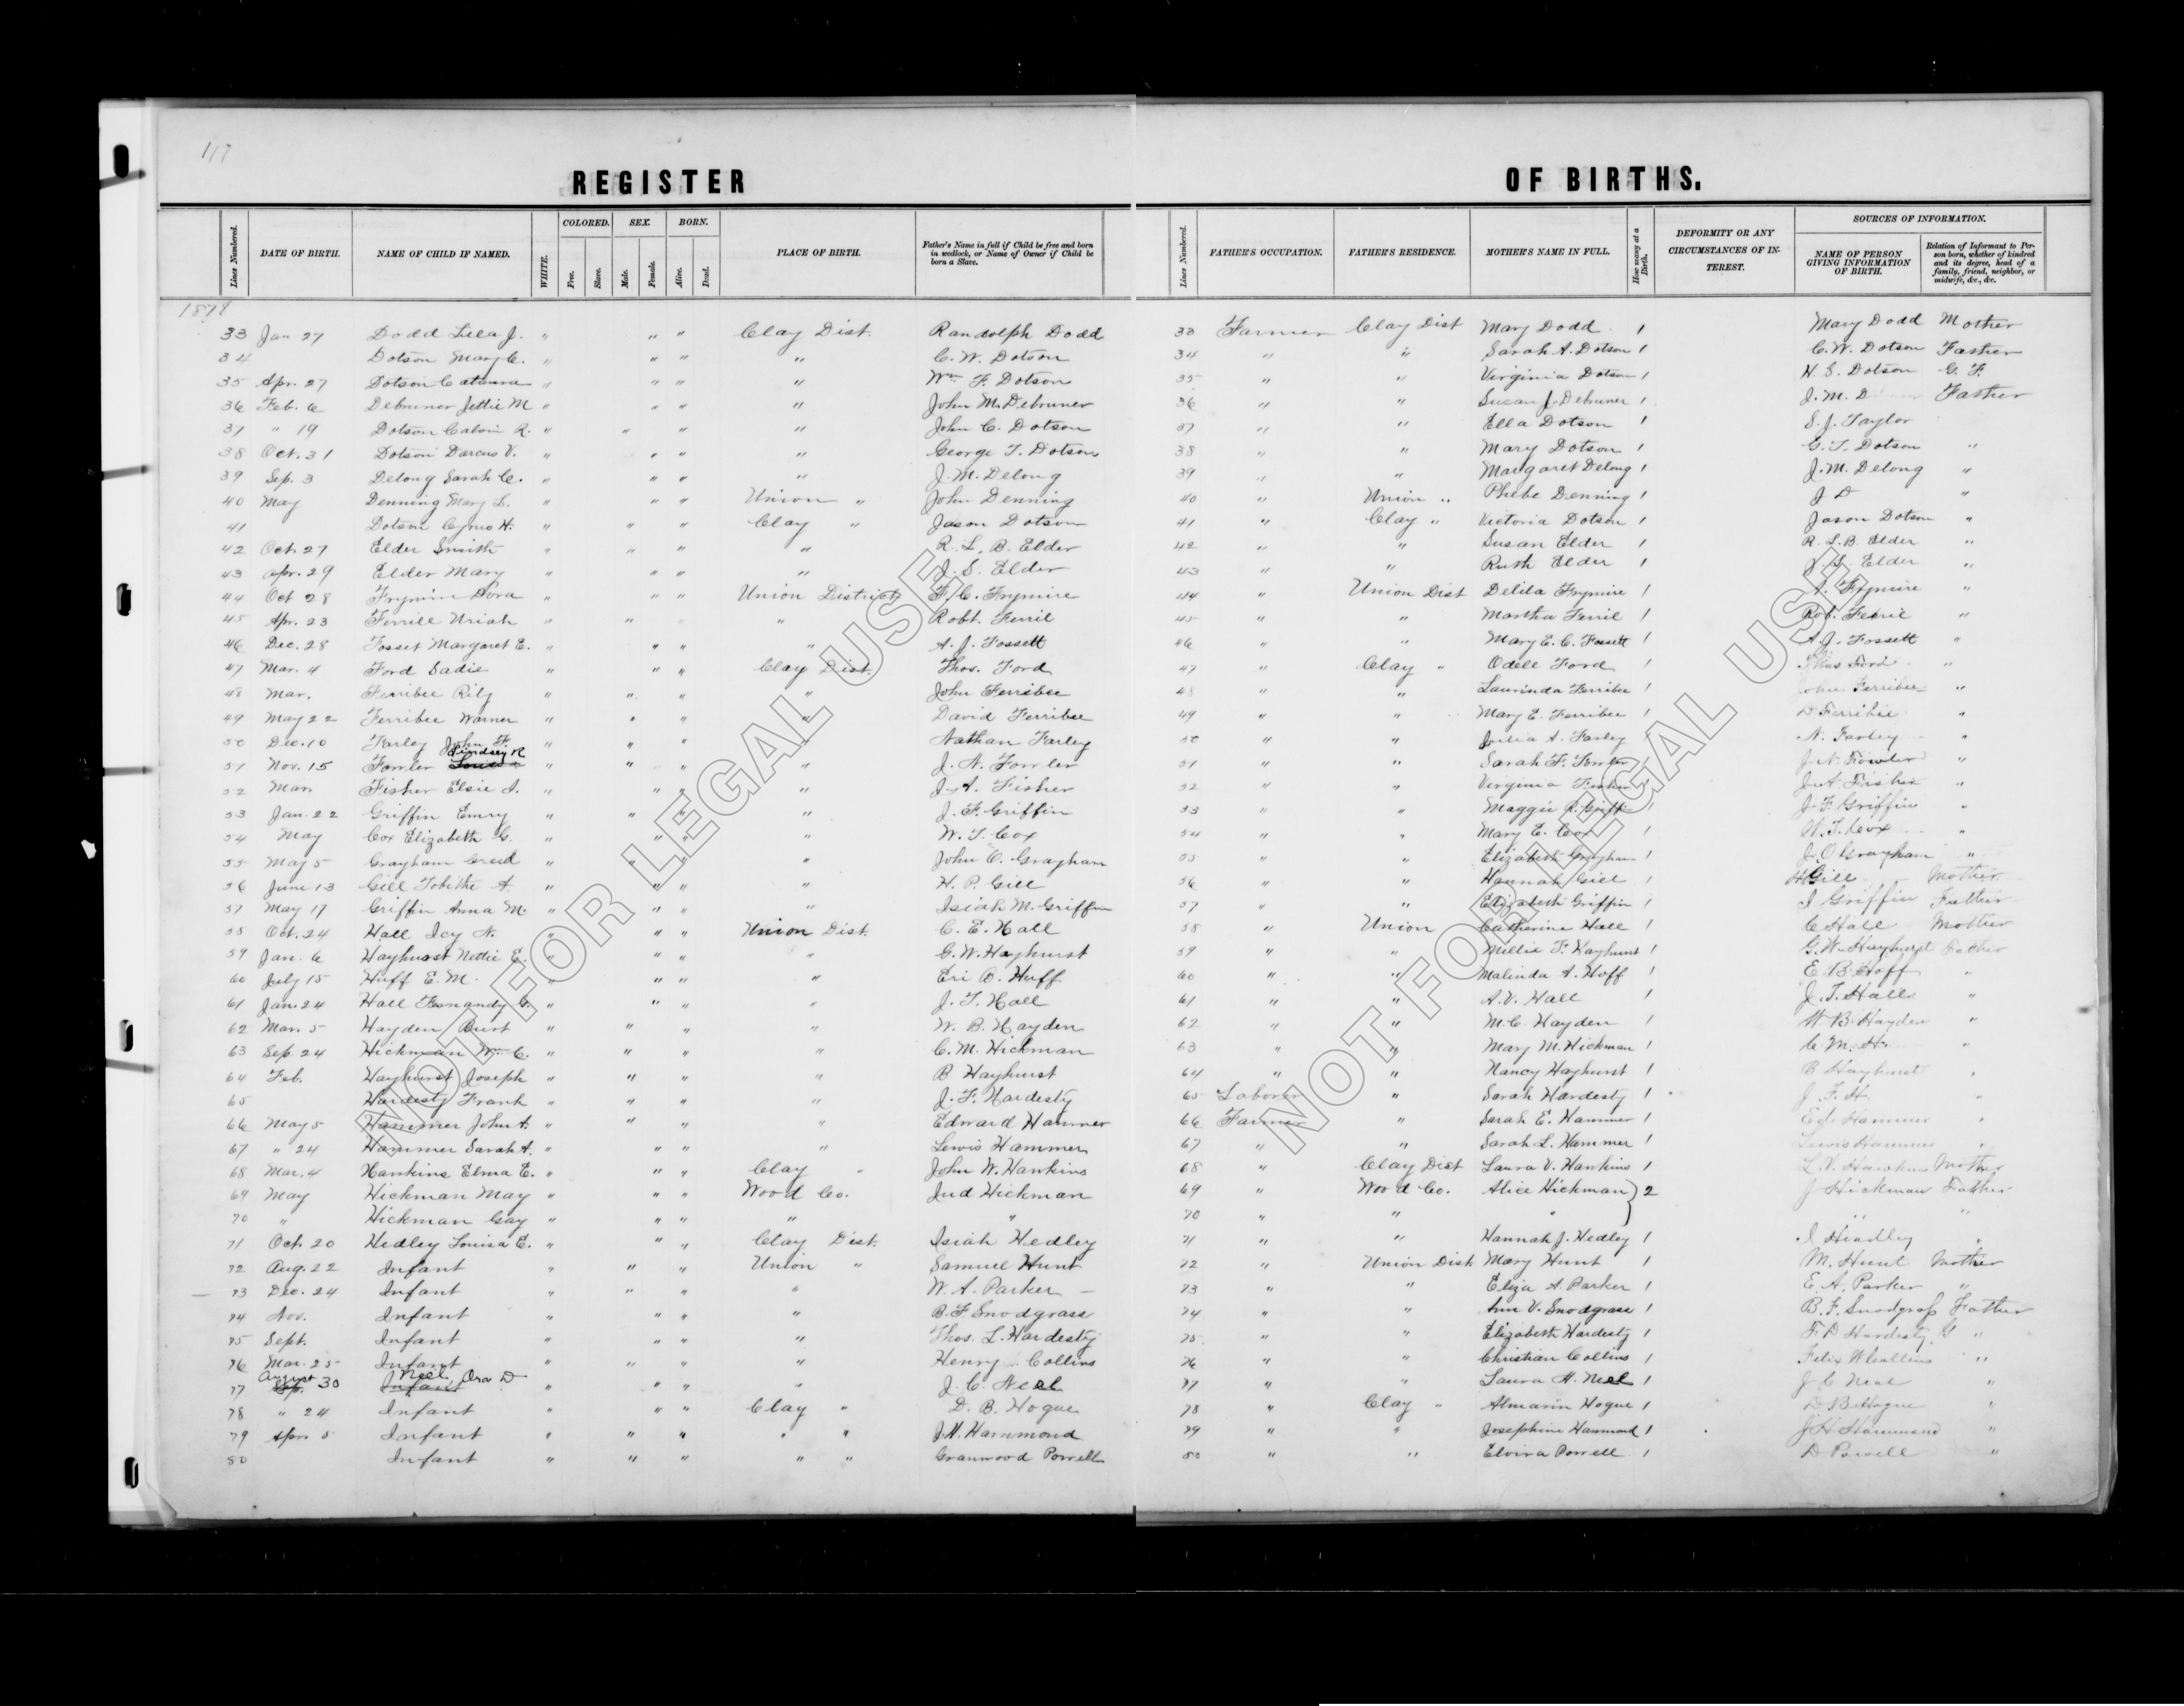 117
REGISTER OF BIRTHS.
Lines Numbered. DATE OF BIRTH. NAME OF CHILD IF NAMED. WHITE. COLORED. Free. Slave. SEX. Male. Female. BORN. Alive. Dead. PLACE OF BIRTH. Father's Name in full if Child be free and born in wedlock, or Name of Owner if Child be born a Slave. Lines Numbered. FATHER'S OCCUPATION. FATHER'S RESIDENCE. MOTHER'S NAME IN FULL. How many at a Birth. DEFORMITY OR ANY CIRCUMSTANCES OF INTEREST. SOURCES OF INFORMATION. NAME OF PERSON GIVING INFORMATION OF BIRTH. Relation of Informant to Person born, whether of kindred and its degree, head of a family, friend, neighbor, or midwife, &c., &c.
33 Jan 27 Dodd Lela J. " " " Clay Dist. Randolph Dodd 33 Farmer Clay Dist Mary Dodd 1 Mary Dodd Mother
34 Dotson Mary C. " " " " C. W. Dotson 34 " " Sarah A. Dotson 1 C. W. Dotson Father
35 Apr. 27 Dotson " " " " Wm F. Dotson 35 " " Virginia Dotson 1 H. S. Dotson G. F.
36 Feb. 6 Debruner Jettie M " " " " John M. Debruner 36 " " Susan J. Debruner 1 J. M. D Father
37 " 19 Dotson Calvin R. " " " " John C. Dotson 37 " " Ella Dotson 1 S. J. Taylor
38 Oct. 31 Dotson Darcus V. " " " " George T. Dotson 38 " " Mary Dotson 1 G. T. Dotson "
39 Sep. 3 Delong Sarah C. " " " " J. M. Delong 39 " " Margaret Delong 1 J. M. Delong "
40 May Denning Mary L. " " " Union " John Denning 40 " Union " Phebe Denning 1 J D "
41 Dotson Cyrus H. " " " Clay " Jason Dotson 41 " Clay " Victoria Dotson 1 Jason Dotson "
42 Oct. 27 Elder Smith " " " " R. L. B. Elder 42 " " Susan Elder 1 R. L. B. Elder "
43 Apr. 29 Elder Mary " " " " J. S. Elder 43 " " Ruth Elder 1 J. S. Elder "
44 Oct 28 Frymire Dora " " " Union District F. C. Frymire 44 " Union Dist Delila Frymire 1 Frymire "
45 Apr. 23 Ferrill Uriah " " " " Robt. Ferril 45 " " Martha Ferril 1 Rob. Ferril "
46 Dec. 28 Fosset Margaret E. " " " " A. J. Fossett 46 " " Mary E. C. Fossett 1 A. J. Fossett "
47 Mar. 4 Ford Sadie " " " Clay Dist. Thos. Ford 47 " Clay " Odell Ford 1 Thos Ford "
48 Mar. Ferribee Rily " " " " John Ferribee 48 " " Laurinda Ferribee 1 John Ferribee "
49 May 22 Ferribee Warner " " " " David Ferribee 49 " " Mary E. Ferribee 1 D Ferribee "
50 Dec. 10 Farley John F. " " " " Nathan Farley 50 " " Julia A. Farley 1 N. Farley "
51 Nov. 15 Fowler Lindsey R " " " " J. N. Fowler 51 " " Sarah F. Fowler 1 J. N. Fowler "
52 Mar. Fisher Elsie I. " " " " J. A. Fisher 52 " " Virginia Fisher 1 J. A Fisher "
53 Jan. 22 Griffin Emry " " " " J. F. Griffin 53 " " Maggie R. Griffin 1 J. F Griffin "
54 May Cox Elizabeth G. " " " " W. T. Cox 54 " " Mary E. Cox 1 W. T. Cox "
55 May 5 Grayham Creed " " " " John O. Grayham 55 " " Elizabeth Grayham 1 J. O Grayham "
56 June 13 Gill Tobitha A. " " " " H. P. Gill 56 " " Hannah Gill 1 H Gill Mother
57 May 17 Griffin Anna M. " " " " Isiah M. Griffin 57 " " Elizabeth Griffin 1 I Griffin Father
58 Oct. 24 Hall Icy N. " " " Union Dist. C. E. Hall 58 " Union Catherine Hall 1 C Hall Mother
59 Jan. 6 Hayhurst Nettie E. " " " " G. W. Hayhurst 59 " " Millie F. Hayhurst 1 G. W. Hayhurst Father
60 July 15 Huff E. M. " " " " Eri B. Huff 60 " " Malinda A. Hoff 1 E. B. Hoff "
61 Jan. 24 Hall Fernandy G. " " " " J. T. Hall 61 " " A. V. Hall 1 J. T. Hall "
62 Mar. 5 Hayden Burt " " " " W. B. Hayden 62 " " M. C. Hayden 1 W B. Hayden "
63 Sep. 24 Hickman Wm C. " " " " C. M. Hickman 63 " " Mary M. Hickman 1 C. M. H. "
64 Feb. Hayhurst Joseph " " " " B Hayhurst 64 " " Nancy Hayhurst 1 B Hayhurst "
65 Hardesty Frank " " " " J. F. Hardesty 65 Laborer " Sarah Hardesty 1 J. F. H. "
66 May 5 Hammer John A. " " " " Edward Hammer 66 Farmer " Sarah E. Hammer 1 Ed. Hammer "
67 " 24 Hammer Sarah A. " " Lewis Hammer 67 " " Sarah L. Hammer 1 Lewis Hammer "
68 Mar. 4 Hankins Elma E. " " " Clay " John W. Hankins 68 " Clay Dist Laura V. Hankins 1 L. V. Hawkins Mother
69 May Hickman May " " " Wood Co. Jud Hickman 69 " Wood Co. Alice Hickman } 2 J Hickman Father
70 " Hickman Gay " " " " " 70 " " " " "
71 Oct. 20 Hedley Louisa E. " " " Clay Dist. Isiah Hedley 71 " " Hannah J. Hedley 1 I Headley "
72 Aug. 22 Infant " " " Union " Samuel Hunt 72 " Union Dist Mary Hunt 1 M. Hunt Mother
73 Dec. 24 Infant " " " " W. A. Parker 73 " " Eliza A. Parker 1 E. A. Parker "
74 Nov. Infant " " " " B. F Snodgrass 74 " " Ann V. Snodgrass 1 B. F. Snodgrass Father
75 Sept. Infant " " " " Thos. L. Hardesty 75 " " Elizabeth Hardesty 1 Hardesty "
76 Mar. 25 Infant " " " " Henry Collins 76 " " Christian Collins 1 Felix W Collins "
77 August 30 Neel, Ora D " " " " J. C. Neel 77 " " Laura H. Neel 1 J C Neal "
78 " 24 Infant " " " Clay " D. B. Hogue 78 " Clay " Almarin Hogue 1 D B Hogue "
79 Apr. 5 Infant " " " " " J. H. Hammond 79 " " Josephine Hammond 1 J H Hammond "
80 Infant " " " " " Granwood Powell 80 " " Elvira Powell 1 D Powell "
NOT FOR LEGAL USE
NOT FOR LEGAL USE